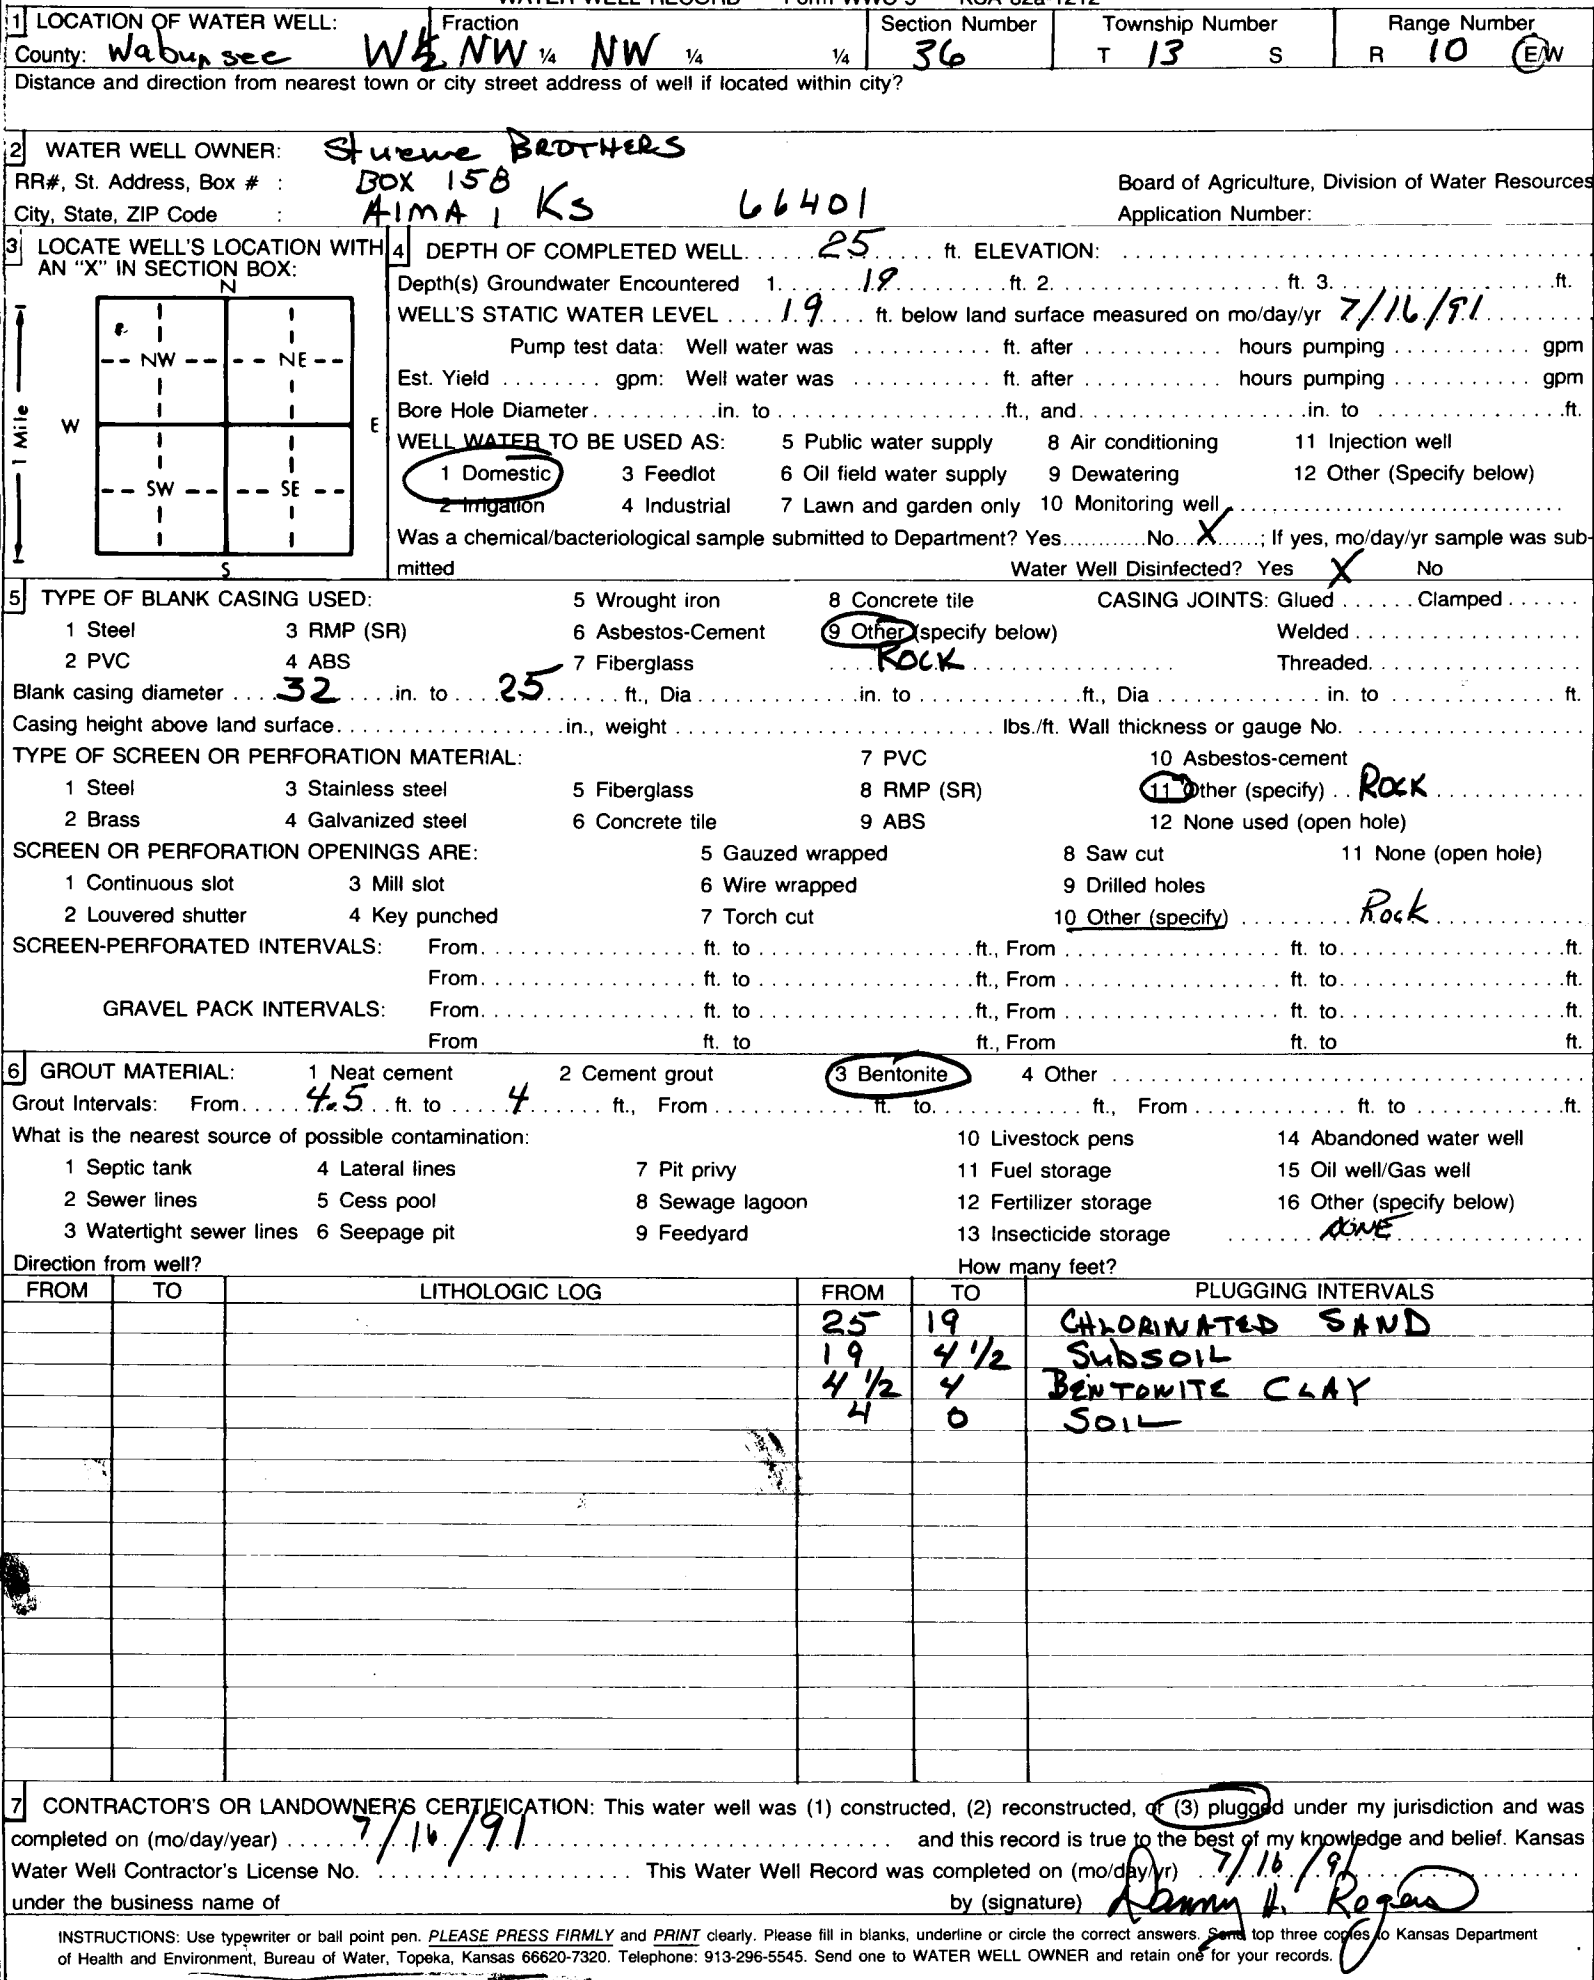 WATER WELL RECORD Form WWC-5 KSA 82a-1212
1 LOCATION OF WATER WELL: Fraction Section Number Township Number Range Number
County: Wabunsee W½ NW ¼ NW ¼ ¼ 36 T 13 S R 10 E/W
Distance and direction from nearest town or city street address of well if located within city?
2 WATER WELL OWNER: Stuewe BROTHERS
RR#, St. Address, Box # : BOX 158 Board of Agriculture, Division of Water Resources
City, State, ZIP Code : AlMA, KS 66401 Application Number:
3 LOCATE WELL'S LOCATION WITH AN "X" IN SECTION BOX:
N
NW NE
W E
SW SE
S
1 Mile
4 DEPTH OF COMPLETED WELL..... 25 ..... ft. ELEVATION: .....
Depth(s) Groundwater Encountered 1..... 19 ..... ft. 2..... ft. 3..... ft.
WELL'S STATIC WATER LEVEL .... 19 .... ft. below land surface measured on mo/day/yr 7/16/91
Pump test data: Well water was ..... ft. after ..... hours pumping ..... gpm
Est. Yield ..... gpm: Well water was ..... ft. after ..... hours pumping ..... gpm
Bore Hole Diameter ..... in. to ..... ft., and ..... in. to ..... ft.
WELL WATER TO BE USED AS: 5 Public water supply 8 Air conditioning 11 Injection well
1 Domestic 3 Feedlot 6 Oil field water supply 9 Dewatering 12 Other (Specify below)
2 Irrigation 4 Industrial 7 Lawn and garden only 10 Monitoring well .....
Was a chemical/bacteriological sample submitted to Department? Yes.....No...X.....; If yes, mo/day/yr sample was sub-
mitted Water Well Disinfected? Yes X No
5 TYPE OF BLANK CASING USED: 5 Wrought iron 8 Concrete tile CASING JOINTS: Glued ..... Clamped .....
1 Steel 3 RMP (SR) 6 Asbestos-Cement 9 Other (specify below) Welded .....
2 PVC 4 ABS 7 Fiberglass ..... ROCK ..... Threaded.....
Blank casing diameter .... 32 .... in. to .... 25 .... ft., Dia ..... in. to ..... ft., Dia ..... in. to ..... ft.
Casing height above land surface..... in., weight ..... lbs./ft. Wall thickness or gauge No. .....
TYPE OF SCREEN OR PERFORATION MATERIAL: 7 PVC 10 Asbestos-cement
1 Steel 3 Stainless steel 5 Fiberglass 8 RMP (SR) 11 Other (specify) .. ROCK .....
2 Brass 4 Galvanized steel 6 Concrete tile 9 ABS 12 None used (open hole)
SCREEN OR PERFORATION OPENINGS ARE: 5 Gauzed wrapped 8 Saw cut 11 None (open hole)
1 Continuous slot 3 Mill slot 6 Wire wrapped 9 Drilled holes
2 Louvered shutter 4 Key punched 7 Torch cut 10 Other (specify) ..... Rock .....
SCREEN-PERFORATED INTERVALS: From..... ft. to ..... ft., From ..... ft. to..... ft.
From..... ft. to ..... ft., From ..... ft. to..... ft.
GRAVEL PACK INTERVALS: From..... ft. to ..... ft., From ..... ft. to..... ft.
From ft. to ft., From ft. to ft.
6 GROUT MATERIAL: 1 Neat cement 2 Cement grout 3 Bentonite 4 Other .....
Grout Intervals: From..... 4.5 ... ft. to .... 4 ..... ft., From ..... ft. to..... ft., From ..... ft. to ..... ft.
What is the nearest source of possible contamination: 10 Livestock pens 14 Abandoned water well
1 Septic tank 4 Lateral lines 7 Pit privy 11 Fuel storage 15 Oil well/Gas well
2 Sewer lines 5 Cess pool 8 Sewage lagoon 12 Fertilizer storage 16 Other (specify below)
3 Watertight sewer lines 6 Seepage pit 9 Feedyard 13 Insecticide storage ..... NONE .....
Direction from well? How many feet?
FROM TO LITHOLOGIC LOG FROM TO PLUGGING INTERVALS
25 19 CHLORINATED SAND
19 4 1/2 SUBSOIL
4 1/2 4 BENTONITE CLAY
4 0 SOIL
7 CONTRACTOR'S OR LANDOWNER'S CERTIFICATION: This water well was (1) constructed, (2) reconstructed, or (3) plugged under my jurisdiction and was
completed on (mo/day/year) ..... 7/16/91 ..... and this record is true to the best of my knowledge and belief. Kansas
Water Well Contractor's License No. ..... This Water Well Record was completed on (mo/day/yr) .. 7/16/91 .....
under the business name of by (signature) Danny H. Rogers
INSTRUCTIONS: Use typewriter or ball point pen. PLEASE PRESS FIRMLY and PRINT clearly. Please fill in blanks, underline or circle the correct answers. Send top three copies to Kansas Department
of Health and Environment, Bureau of Water, Topeka, Kansas 66620-7320. Telephone: 913-296-5545. Send one to WATER WELL OWNER and retain one for your records.